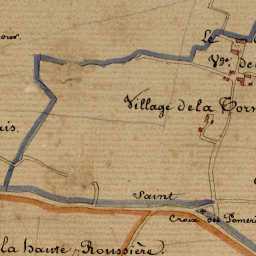 Le
Vge. de
Village de la Torn
ais.
Saint
Croix des Pomeri
la haute Roussière.